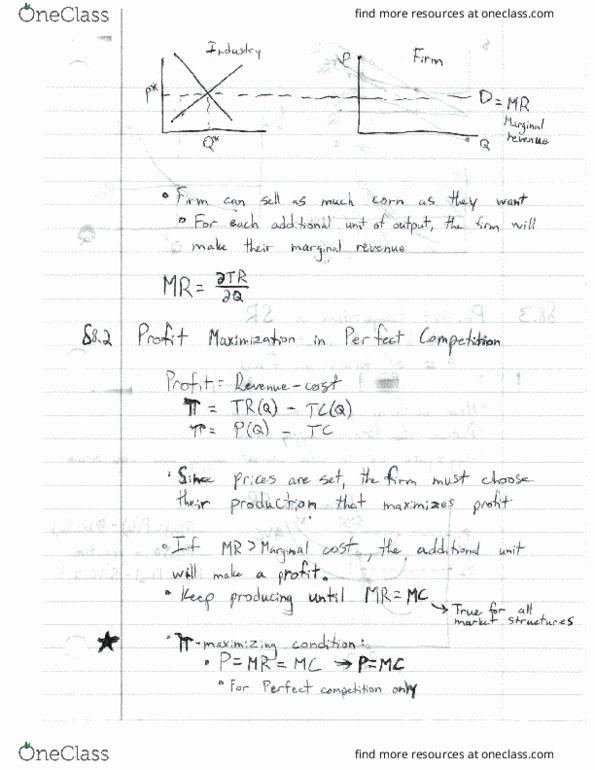 OneClass
find more resources at oneclass.com
Industry
Firm
P
P*
D = MR
Marginal
revenue
Q*
Q
• Firm can sell as much corn as they want
• For each additional unit of output, the firm will
make their marginal revenue
MR = ∂TR/∂Q
§8.2 Profit Maximization in Perfect Competition
Profit = Revenue - cost
π = TR(Q) - TC(Q)
π = P(Q) - TC
• Since prices are set, the firm must choose
their production that maximizes profit
• If MR > Marginal cost, the additional unit
will make a profit.
• Keep producing until MR = MC
→ True for all
market structures
★ • π-maximizing condition:
• P = MR = MC → P = MC
• For Perfect competition only
OneClass
find more resources at oneclass.com